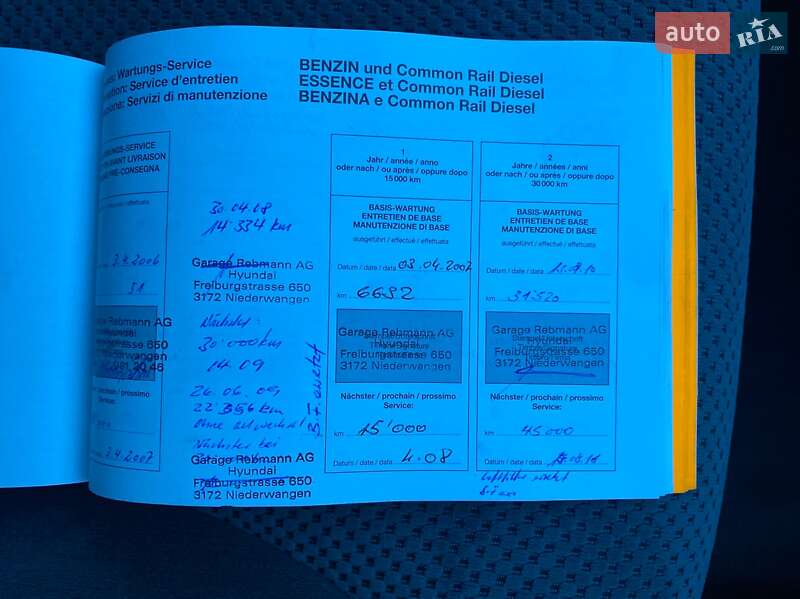 auto RIA .com
Wartungs-Service
Service d'entretien
Servizi di manutenzione
BENZIN und Common Rail Diesel
ESSENCE et Common Rail Diesel
BENZINA e Common Rail Diesel
AVANT LIVRAISON
PRE-CONSEGNA
3.4.2006
51
Garage Rebmann AG
Hyundai
Freiburgstrasse 650
3172 Niederwangen
prochain / prossimo
Service:
3.4.2007
30.04.08
14'334 km
Garage Rebmann AG
Hyundai
Freiburgstrasse 650
3172 Niederwangen
Nächster:
30'000 km
14.09
26.06.09
22'356 km
ohne
Nächster bei
Garage Rebmann AG
Hyundai
Freiburgstrasse 650
3172 Niederwangen
1
Jahr / année / anno
oder nach / ou après / oppure dopo
15 000 km
BASIS-WARTUNG
ENTRETIEN DE BASE
MANUTENZIONE DI BASE
ausgeführt / effectué / effettuata
Datum / date / data 03.04.2007
km 6692
Garage Rebmann AG
Hyundai
Freiburgstrasse 650
3172 Niederwangen
Nächster / prochain / prossimo
Service:
km 15'000
Datum / date / data 4.08
2
Jahre / années / anni
oder nach / ou après / oppure dopo
30 000 km
BASIS-WARTUNG
ENTRETIEN DE BASE
MANUTENZIONE DI BASE
ausgeführt / effectué / effettuata
Datum / date / data
km 31'520
Garage Rebmann AG
Hyundai
Freiburgstrasse 650
3172 Niederwangen
Nächster / prochain / prossimo
Service:
km 45'000
Datum / date / data